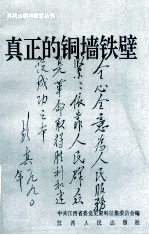 井冈山精神教育丛书
真正的铜墙铁壁
全心全意为人民服务
紧紧依靠人民群众
是革命取得胜利和建
设成功之本
中共江西省委党史资料征集委员会编
江西人民出版社